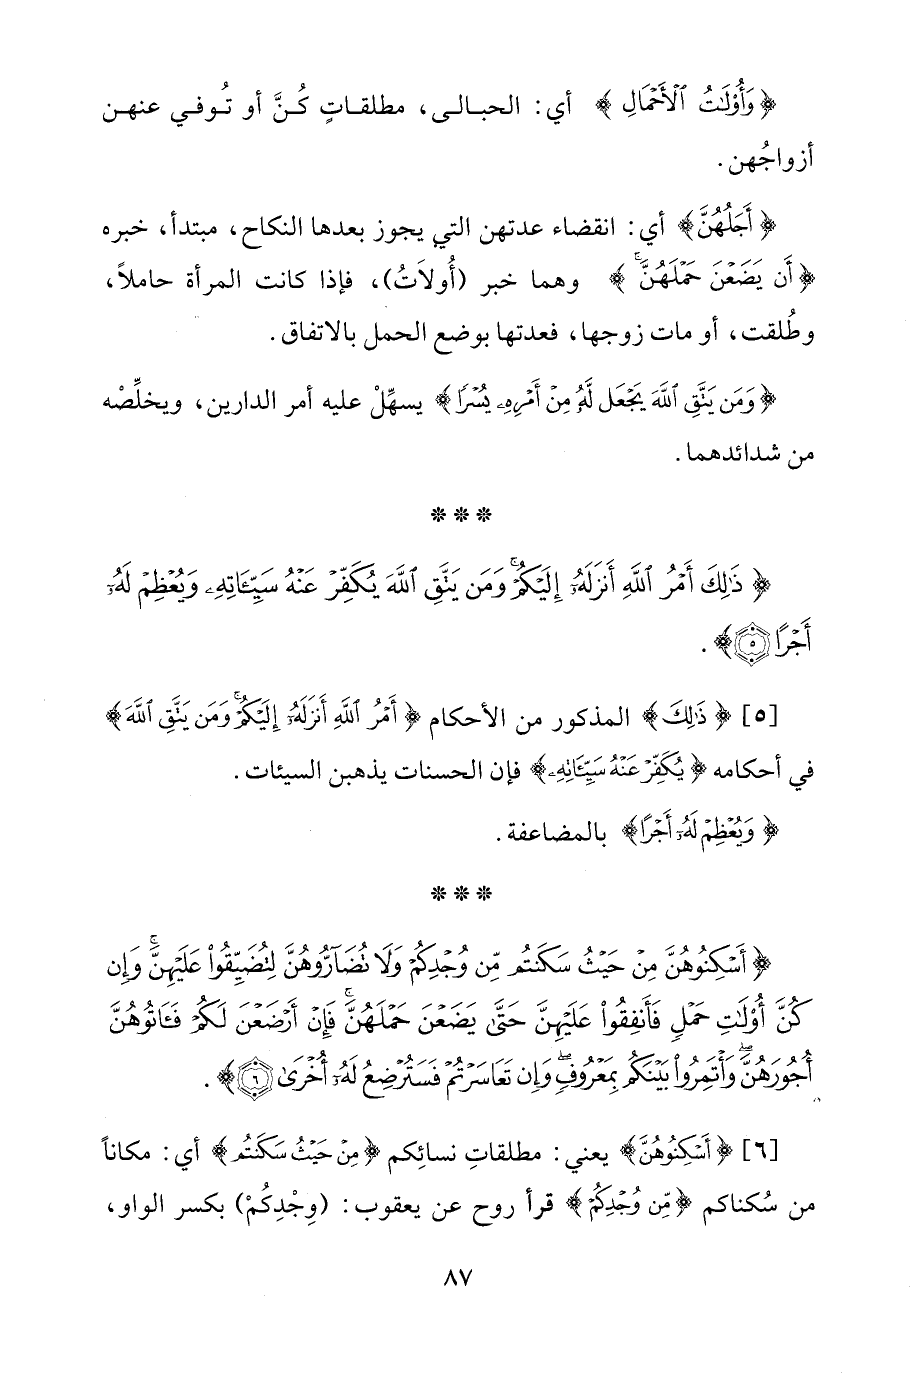 ﴿ وَأُوْلَٰتُ ٱلْأَحْمَالِ ﴾ أي: الحبالى، مطلقاتٍ كُنَّ أو تُوفي عنهن
أزواجُهن.
﴿ أَجَلُهُنَّ ﴾ أي: انقضاء عدتهن التي يجوز بعدها النكاح، مبتدأ، خبره
﴿ أَن يَضَعْنَ حَمْلَهُنَّۚ ﴾ وهما خبر (أُولاَتُ)، فإذا كانت المرأة حاملاً،
وطُلقت، أو مات زوجها، فعدتها بوضع الحمل بالاتفاق.
﴿ وَمَن يَتَّقِ ٱللَّهَ يَجْعَل لَّهُۥ مِنْ أَمْرِهِۦ يُسْرًا ﴾ يسهِّلْ عليه أمر الدارين، ويخلِّصْه
من شدائدهما.
***
﴿ ذَٰلِكَ أَمْرُ ٱللَّهِ أَنزَلَهُۥٓ إِلَيْكُمْۚ وَمَن يَتَّقِ ٱللَّهَ يُكَفِّرْ عَنْهُ سَيِّـَٔاتِهِۦ وَيُعْظِمْ لَهُۥٓ
أَجْرًا ٥ ﴾.
[٥] ﴿ ذَٰلِكَ ﴾ المذكور من الأحكام ﴿ أَمْرُ ٱللَّهِ أَنزَلَهُۥٓ إِلَيْكُمْۚ وَمَن يَتَّقِ ٱللَّهَ ﴾
في أحكامه ﴿ يُكَفِّرْ عَنْهُ سَيِّـَٔاتِهِۦ ﴾ فإن الحسنات يذهبن السيئات.
﴿ وَيُعْظِمْ لَهُۥٓ أَجْرًا ﴾ بالمضاعفة.
***
﴿ أَسْكِنُوهُنَّ مِنْ حَيْثُ سَكَنتُم مِّن وُجْدِكُمْ وَلَا تُضَآرُّوهُنَّ لِتُضَيِّقُوا۟ عَلَيْهِنَّۚ وَإِن
كُنَّ أُو۟لَٰتِ حَمْلٍ فَأَنفِقُوا۟ عَلَيْهِنَّ حَتَّىٰ يَضَعْنَ حَمْلَهُنَّۚ فَإِنْ أَرْضَعْنَ لَكُمْ فَـَٔاتُوهُنَّ
أُجُورَهُنَّۖ وَأْتَمِرُوا۟ بَيْنَكُم بِمَعْرُوفٍۖ وَإِن تَعَاسَرْتُمْ فَسَتُرْضِعُ لَهُۥٓ أُخْرَىٰ ٦ ﴾.
[٦] ﴿ أَسْكِنُوهُنَّ ﴾ يعني: مطلقاتِ نسائِكم ﴿ مِنْ حَيْثُ سَكَنتُم ﴾ أي: مكاناً
من سُكناكم ﴿ مِّن وُجْدِكُمْ ﴾ قرأ روح عن يعقوب: (وِجْدِكُمْ) بكسر الواو،
٨٧